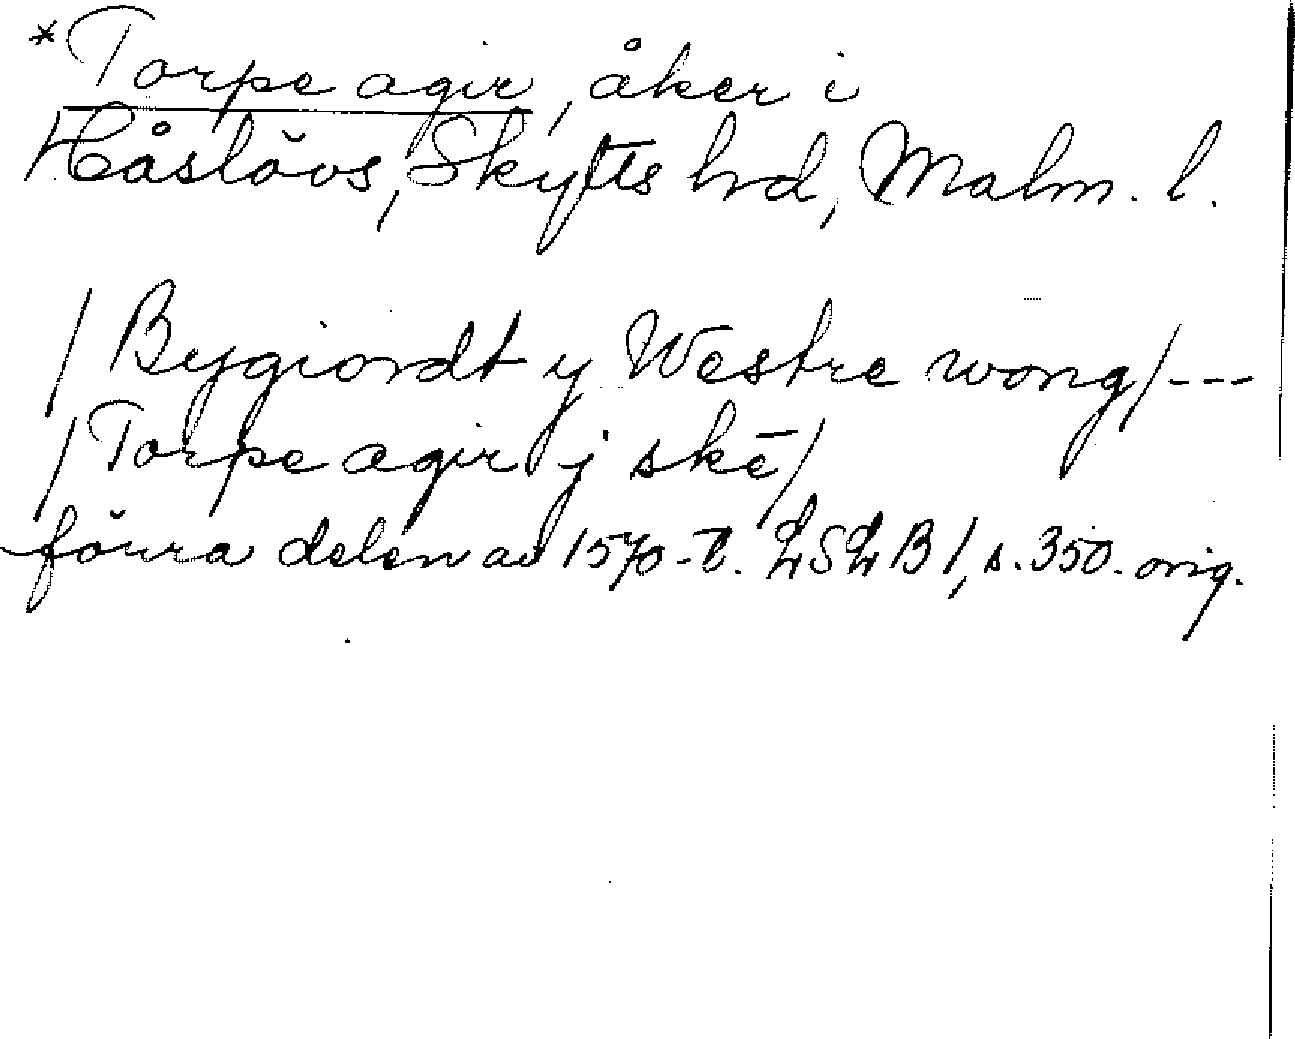 *Torpe agir, åker i
Håslövs, Skytts hrd, Malm. l.
/Bygiordt y Westre wong/---
/Torpe agir j skē/
förra delen av 1570-t. LSLB1, s.350. orig.